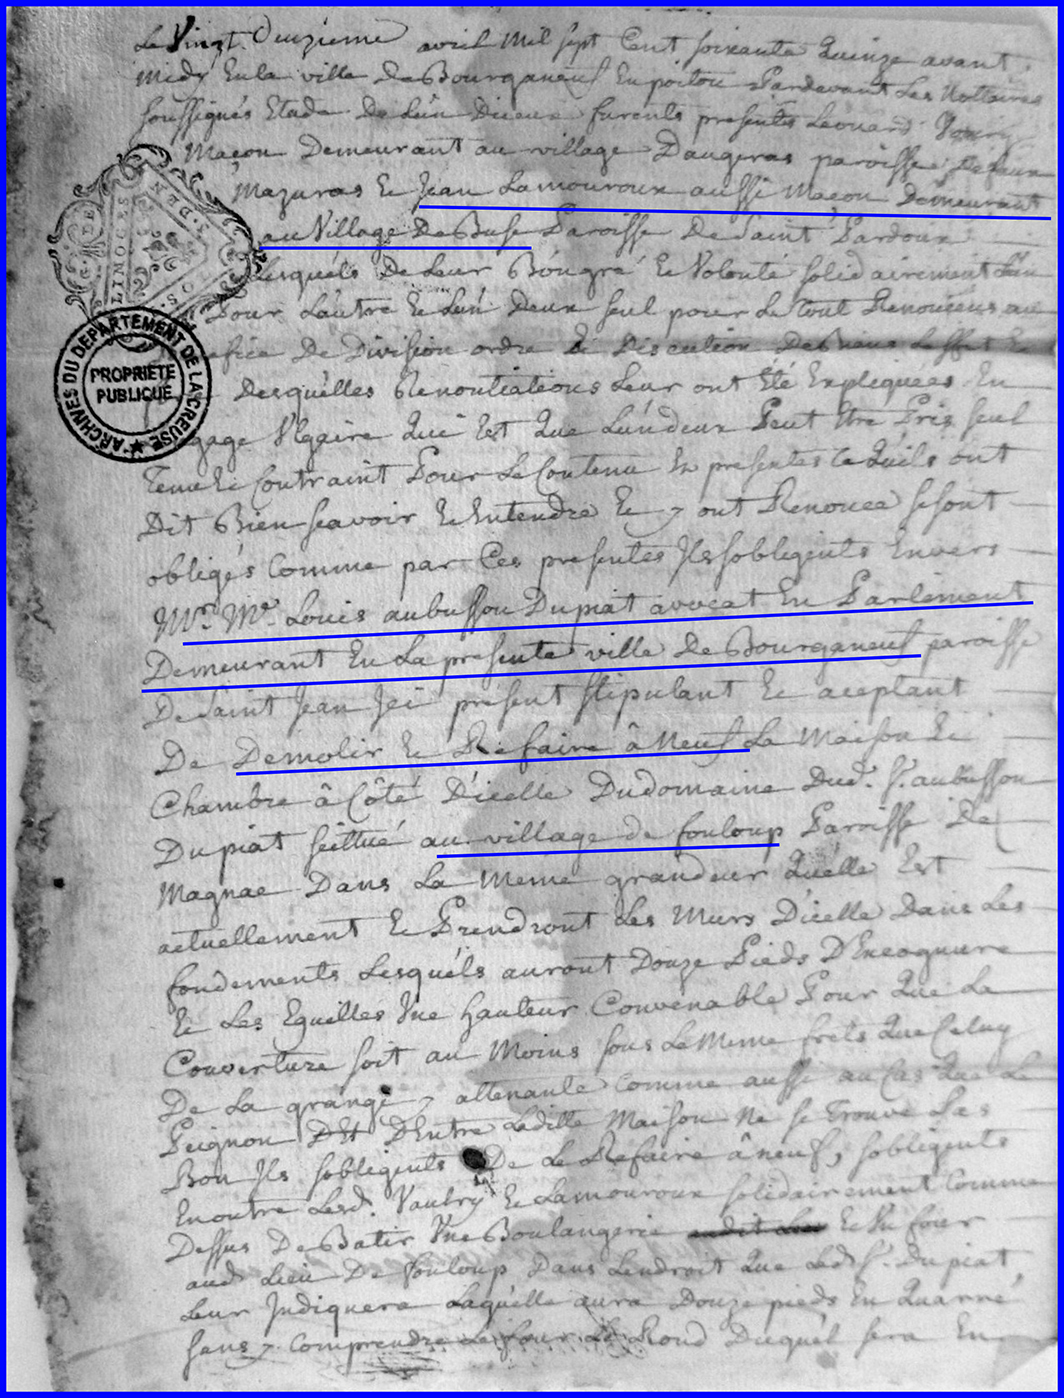 Le Vingt Deuzieme avril Mil sept Cent soixante Quinze avant
Midy En la ville de Bourganeuf En poitou Pardevant Les Nottaires
soussignés Etade De Lun Diceux furents presents Leonard
Maçon Demeurant au village Daugeras paroisse De faux
Mazuras Et Jean Lamouroux aussi Maçon Demeurant
au Village De Buse Paroisse De Saint Pardoux
Lesquéls De Leur Bongré Et Volonté solidairement Lun
Pour Lautre Et Lun Deux seul pour Le tout Renonçens au
efice De Division ordre Et Discution De Biens Leffet Et
Desquélles Renontiations Leur ont Eté Expliquées En
gage Vlgaire Qui Est Que Lundeux Peut Etre Pris seul
Tenu Et Contraint Pour Le Contenu En presentes Ce Quils ont
Dit Bien scavoir Et Entendre Et y ont Renoncé sesont
obligés Comme par Ces presentes Ils sobligents Envers
Mr. Me. Louis aubusson Dupiat avocat En Parlement
Demeurant En La presente ville De Bourganeuf paroisse
De Saint Jean Jci present stipulant Et aceptant
De Demolir Et Refaire â Neuf La Maison Et
Chambre â Côté Dicelle Dudomaine Dud. S. aubusson
Dupiat scittué au village de fouloup Paroisse De
Magnac Dans La meme grandeur Quelle Est
actuellement Et Prendront Les Murs Dicelle Dans Les
fondements Lesquéls auront Douze Pieds DEncognure
Et Les Eguilles Une hauteur Convenable Pour Que La
Couverture soit au Moins sous Le Meme frets Que Celuy
De La grange y attenante Comme aussi au Cas Que Le
Peignon DEntre Laditte Maison Ne se Trouve Pas
Bon Ils sobligents De Le Refaire âneuf, sobligents
En outre Lesd. Vaulry Et Lamouroux solidairement Comme
Dessus De Batir Une Boulangerie Et Un four
aud Lieu De fouloup Dans Lendroit Que Led S. Dupiat
Leur Indiquera Laquélle aura Douze pieds En Quarré
sans y Comprendre Le four Le Rond Duquél sera En
LIMOGES
ARCHIVES DU DEPARTEMENT DE LA CREUSE
PROPRIÉTÉ
PUBLIQUE